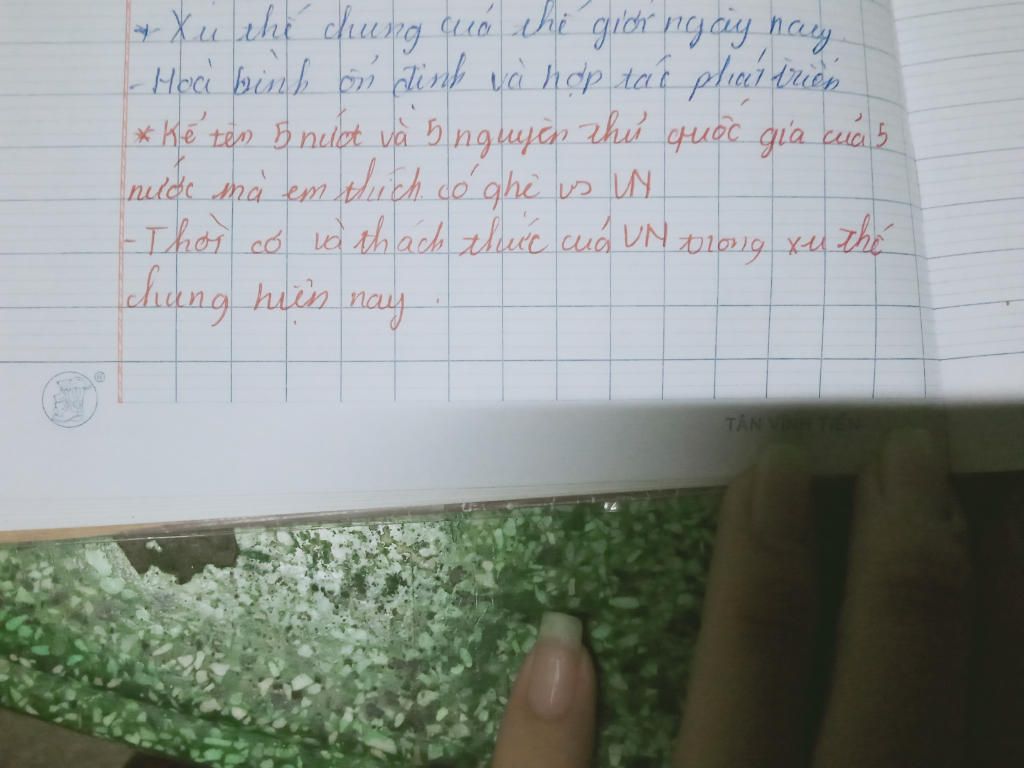 * Xu thế chung của thế giới ngày nay.
- Hoà bình ổn định và hợp tác phát triển
* Kể tên 5 nước và 5 nguyên thủ quốc gia của 5
nước mà em thích có ghé vs VN
- Thời cơ và thách thức của VN trong xu thế
chung hiện nay.
TÂN VĨNH TIẾN